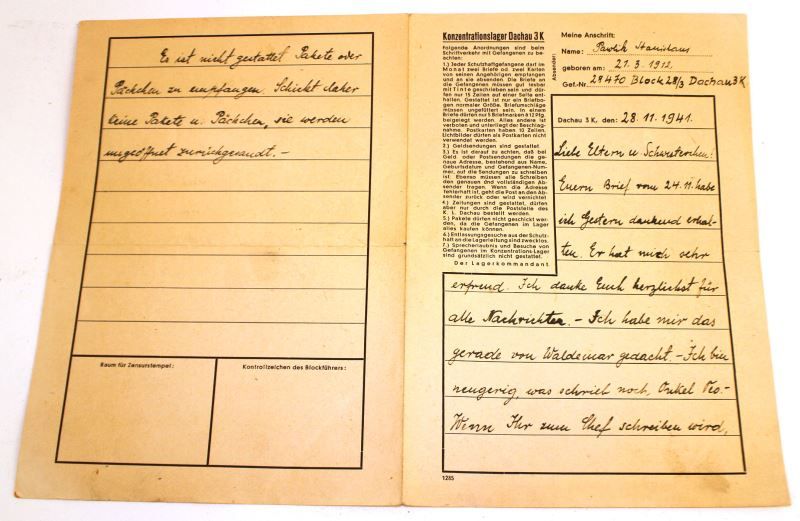 Es ist nicht gestattet Pakete oder
Päckchen zu empfangen. Schickt daher
keine Pakete u. Päckchen, sie werden
ungeöffnet zurückgesandt. –
Raum für Zensurstempel:
Kontrollzeichen des Blockführers:
Konzentrationslager Dachau 3 K
Folgende Anordnungen sind beim
Schriftverkehr mit Gefangenen zu be-
achten:
1.) Jeder Schutzhaftgefangene darf im
Monat zwei Briefe od. zwei Karten
von seinen Angehörigen empfangen
und an sie absenden. Die Briefe an
die Gefangenen müssen gut lesbar
mit Tinte geschrieben sein und dür-
fen nur 15 Zeilen auf einer Seite ent-
halten. Gestattet ist nur ein Briefbo-
gen normaler Größe. Briefumschläge
müssen ungefüttert sein. In einem
Briefe dürfen nur 5 Briefmarken à 12 Pfg.
beigelegt werden. Alles andere ist
verboten und unterliegt der Beschlag-
nahme. Postkarten haben 10 Zeilen.
Lichtbilder dürfen als Postkarten nicht
verwendet werden.
2.) Geldsendungen sind gestattet.
3.) Es ist darauf zu achten, daß bei
Geld- oder Postsendungen die ge-
naue Adresse, bestehend aus Name,
Geburtsdatum und Gefangenen-Num-
mer, auf die Sendungen zu schreiben
ist. Ebenso müssen alle Schreiben
den genauen und vollständigen Ab-
sender tragen. Wenn die Adresse
fehlerhaft ist, geht die Post an den Ab-
sender zurück oder wird vernichtet
4.) Zeitungen sind gestattet, dürfen
aber nur durch die Poststelle des
K. L. Dachau bestellt werden.
5.) Pakete dürfen nicht geschickt wer-
den, da die Gefangenen im Lager
alles kaufen können.
6.) Entlassungsgesuche aus der Schutz-
haft an die Lagerleitung sind zwecklos.
7.) Sprecherlaubnis und Besuche von
Gefangenen im Konzentrations-Lager
sind grundsätzlich nicht gestattet.
Der Lagerkommandant
Absender:
Meine Anschrift:
Name: Pawlik Stanislaus
geboren am: 21.3.1912
Gef.-Nr. 28470 Block 28/3 Dachau 3 K
Dachau 3 K, den 28.11.1941.
Liebe Eltern u. Schwesterchen!
Euern Brief vom 24.11. habe
ich Gestern dankend erhal-
ten. Er hat mich sehr
erfreud. Ich danke Euch herzlichst für
alle Nachrichten. – Ich habe mir das
gerade von Waldemar gedacht. – Ich bin
neugerig, was schrieb noch, Onkel Teo. –
Wenn Ihr zum Chef schreiben wird,
1285